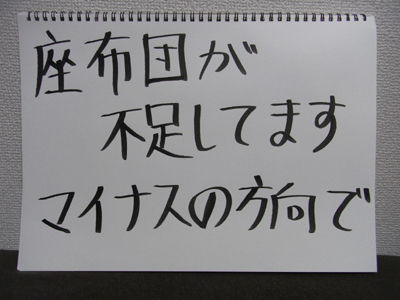 座布団が
不足してます
マイナスの方向で